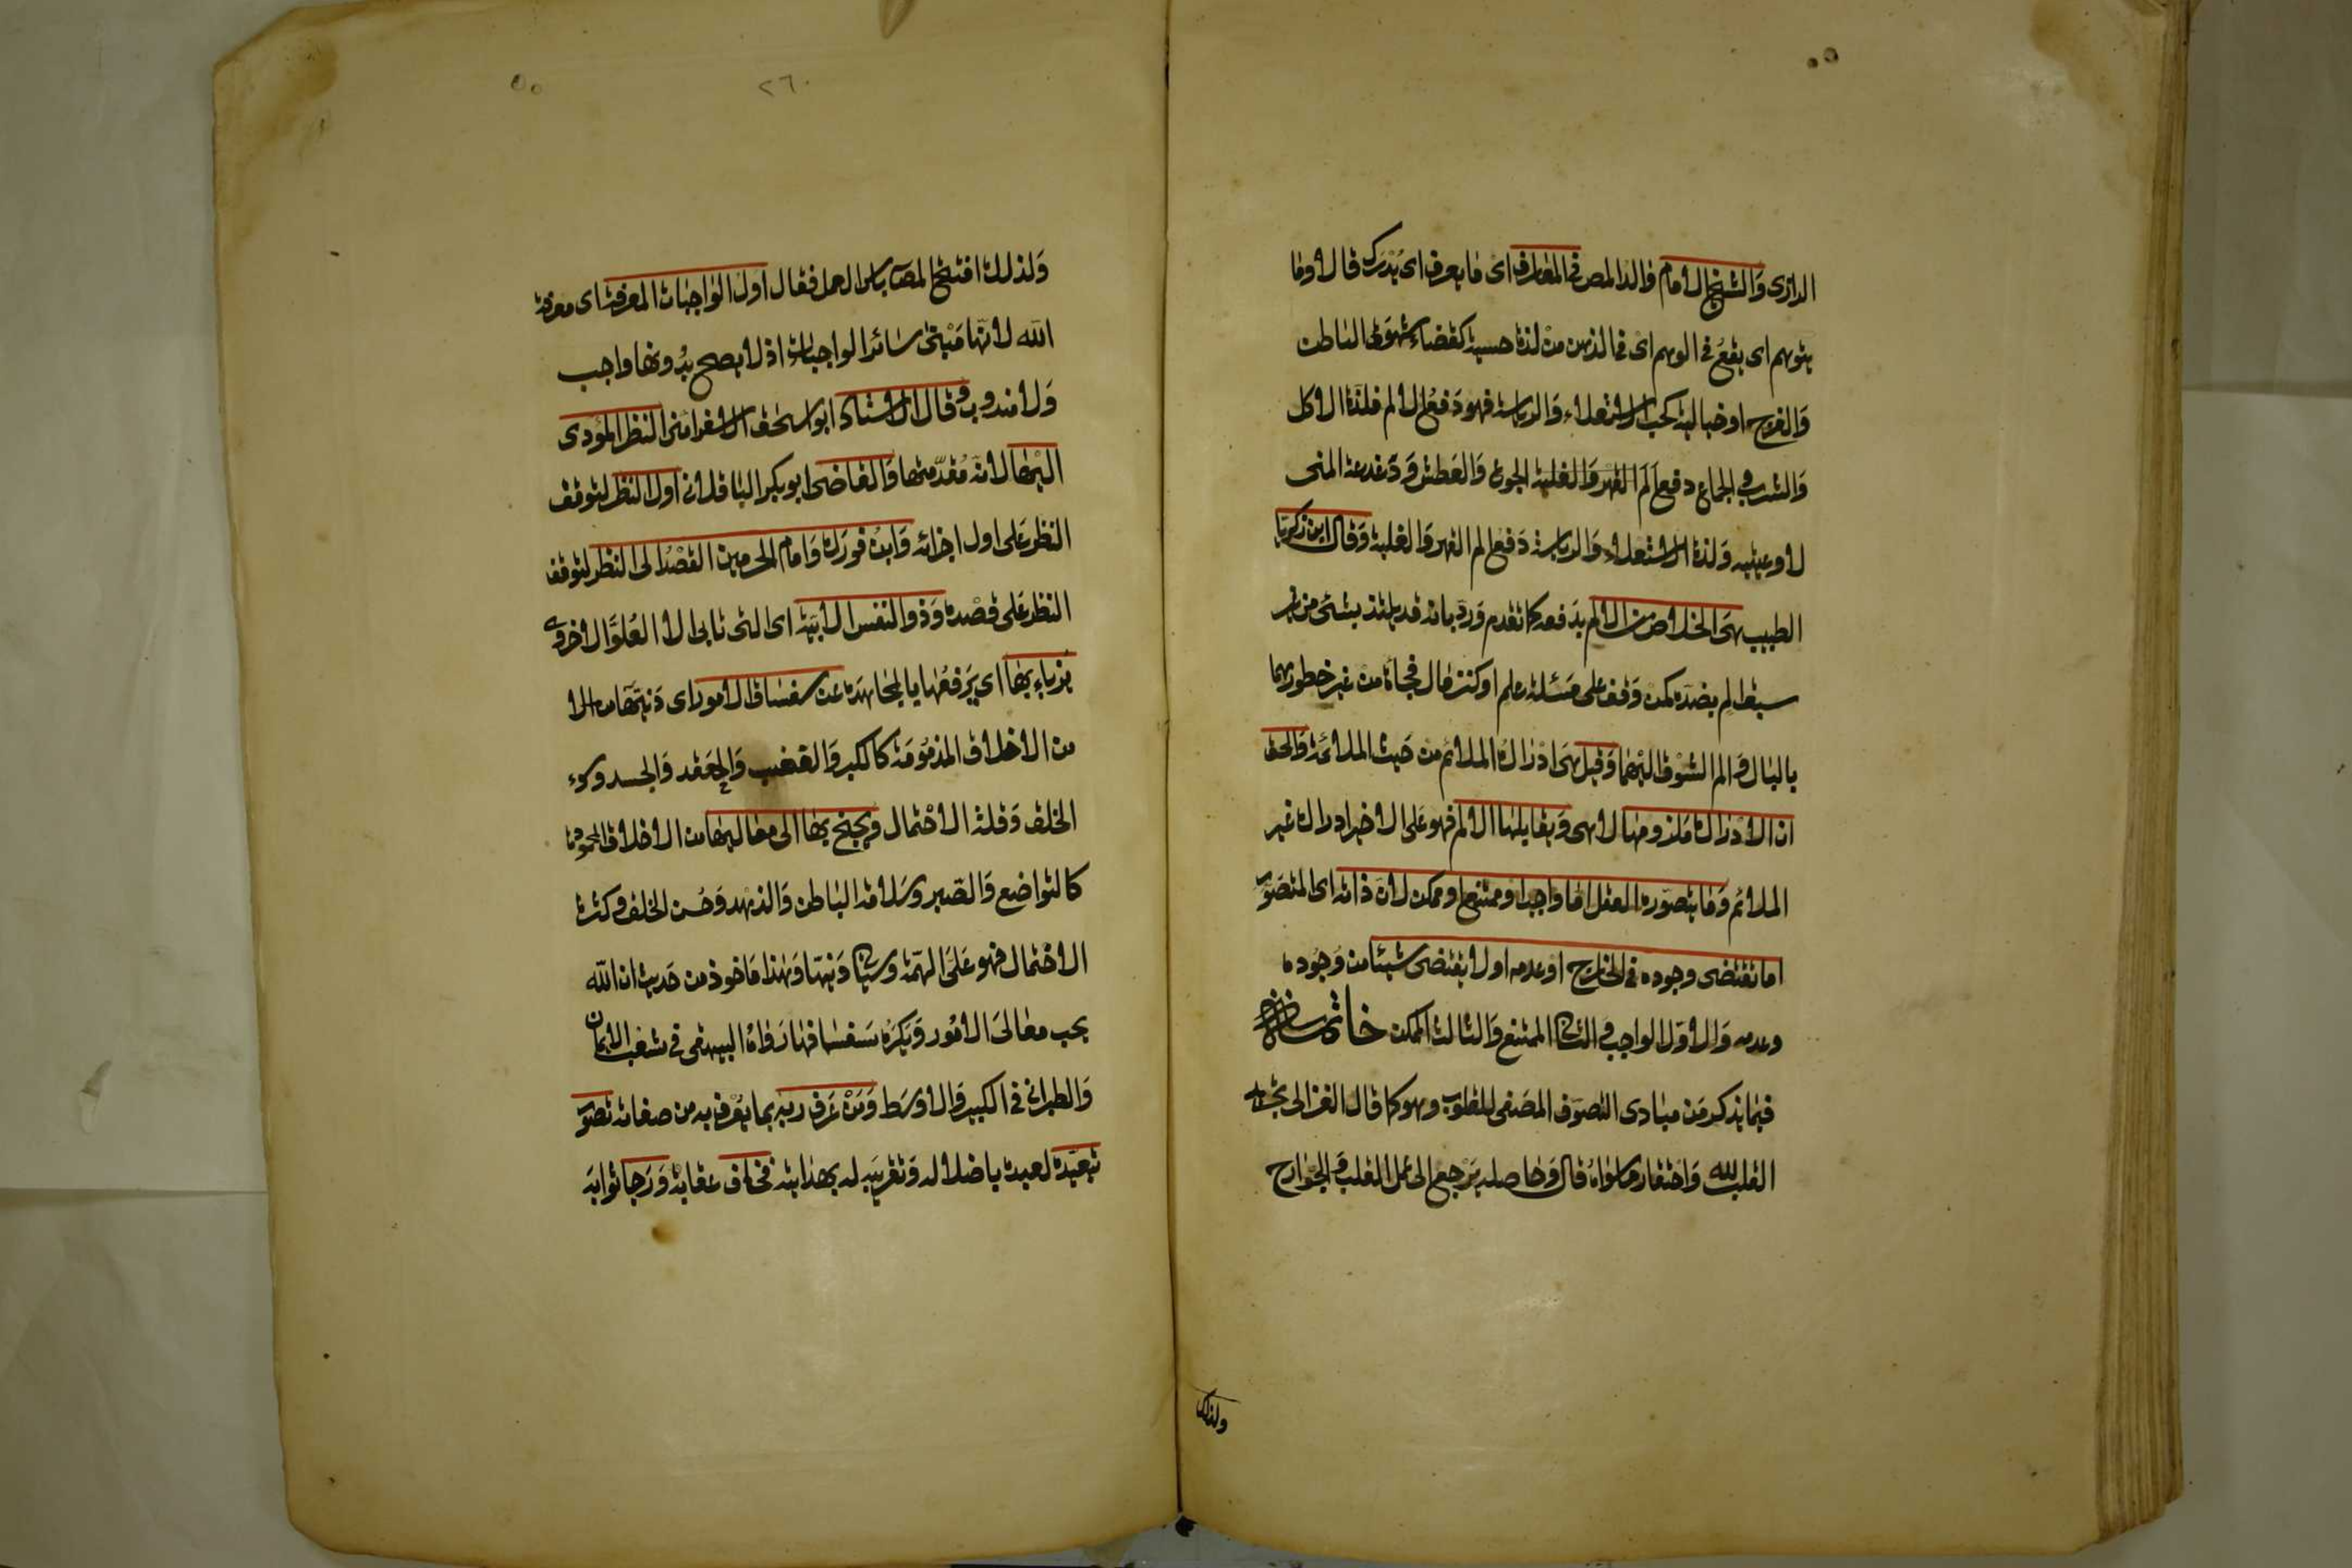 الرازى والشيخ الامام والد المص فى المعارف اى ما يعرف اى يدرك قالا وما
يتوهم اى يقع فى الوهم اى فى الذهن من لذة حسية كقضاء شهوتى الباطن
والفرج او خيالية كحب الاستعلاء والرياسة فهو دفع الالم فلذة الاكل
والشرب والجماع دفع الم القهر والغلبة الجوع والعطش ودغدغة المنى
لاوعيتيه ولذة الاستعلاء والرياسة دفع الم القهر والغلبة وقال ابن زكريا
الطبيب هى الخلاص من الالم بدفعه كما تقدم ورد بانه قد يلتذ بشئ من غير
سبق الم بضده كمن وقف على مسئلة علم او كنز مال فجاة من غير خطورهما
بالبال والم الشوق اليهما وقيل هى ادراك الملائم من حيث الملائمة والحق
ان الادراك ملزومها لا هى ويقابلها الالم فهو على الاخير ادراك غير
الملائم وما يتصوره العقل اما واجب او ممتنع او ممكن لان ذاته اى المتصور
اما تقتضى وجوده فى الخارج او عدمه اولا يقتضى شيئا من وجوده
وعدمه والاول الواجب والثانى الممتنع والثالث الممكن خاتمة
فيما يذكر من مبادى التصوف المصفى للقلوب وهو كما قال الغزالى تجريد
القلب لله واحتقار ما سواه قال وحاصله يرجع الى عمل القلب والجوارح
ولذلك
٢٦٠
ولذلك افتتح المص باس العمل فقال اول الواجبات المعرفة اى معرفة
الله لانها مبنى سائر الواجبات اذ لا يصح بدونها واجب
ولا مندوب وقال الاستاذ ابو اسحق الاسفرائنى النظر المودى
اليها لانه مقدمتها والقاضى ابو بكر الباقلانى اول النظر لتوقف
النظر على اول اجزائه وابن فورك وامام الحرمين القصد الى النظر لتوقف
النظر على قصده وذو النفس الابية اى التى تابى الا العلو الاخروى
يربا بها اى يرفعها بالمجاهدة عن سفساف الامور اى دنيتها
من الاخلاق المذمومة كالكبر والغضب والحقد والحسد وسوء
الخلق وقلة الاحتمال ويجنح بها الى معاليها من الاخلاق المحمودة
كالتواضع والصبر وسلامة الباطن والزهد وحسن الخلق وكثرة
الاحتمال فهو على الهمة وسياتى دنيها وهذا ماخوذ من حديث ان الله
يحب معالى الامور ويكره سفسافها رواه البيهقى فى شعب الايمان
والطبرانى فى الكبير والاوسط ومن عرف ربه بما يعرف به من صفاته تصور
تبعيده لعبده باضلاله وتقريبه له بهدايته فخاف عقابه ورجا ثوابه